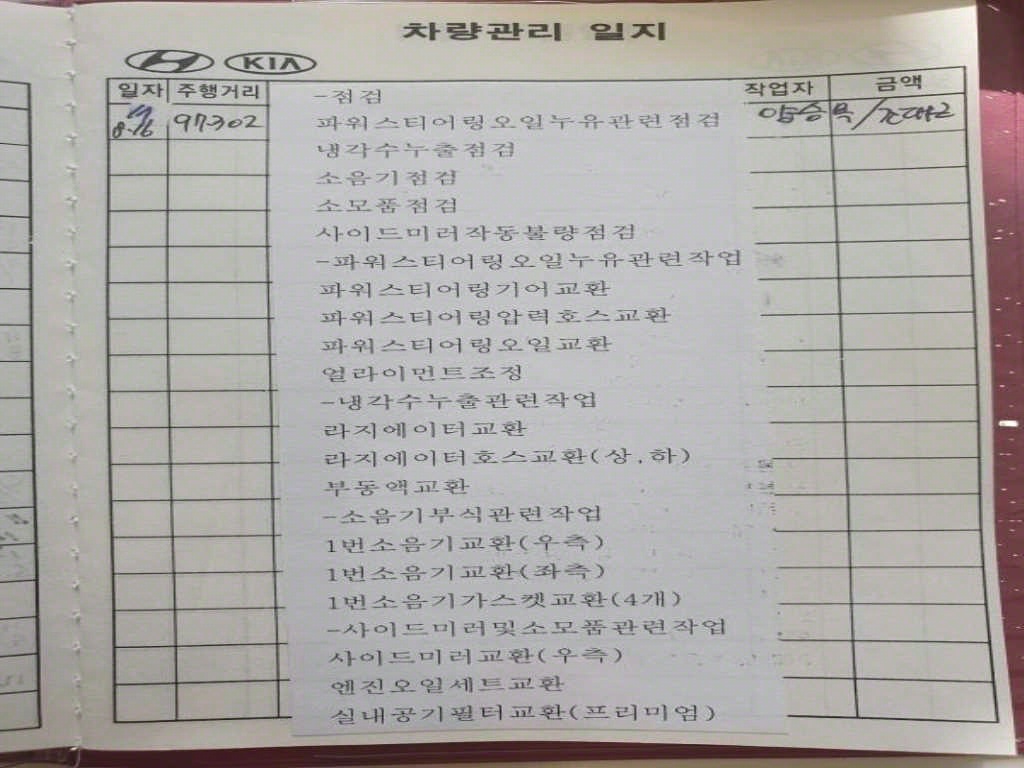 차량관리 일지
KIA
일자 주행거리 작업자 금액
8-16 97302
-점검
파워스티어링오일누유관련점검
냉각수누출점검
소음기점검
소모품점검
사이드미러작동불량점검
-파워스티어링오일누유관련작업
파워스티어링기어교환
파워스티어링압력호스교환
파워스티어링오일교환
얼라이먼트조정
-냉각수누출관련작업
라지에이터교환
라지에이터호스교환(상,하)
부동액교환
-소음기부식관련작업
1번소음기교환(우측)
1번소음기교환(좌측)
1번소음기가스켓교환(4개)
-사이드미러및소모품관련작업
사이드미러교환(우측)
엔진오일세트교환
실내공기필터교환(프리미엄)